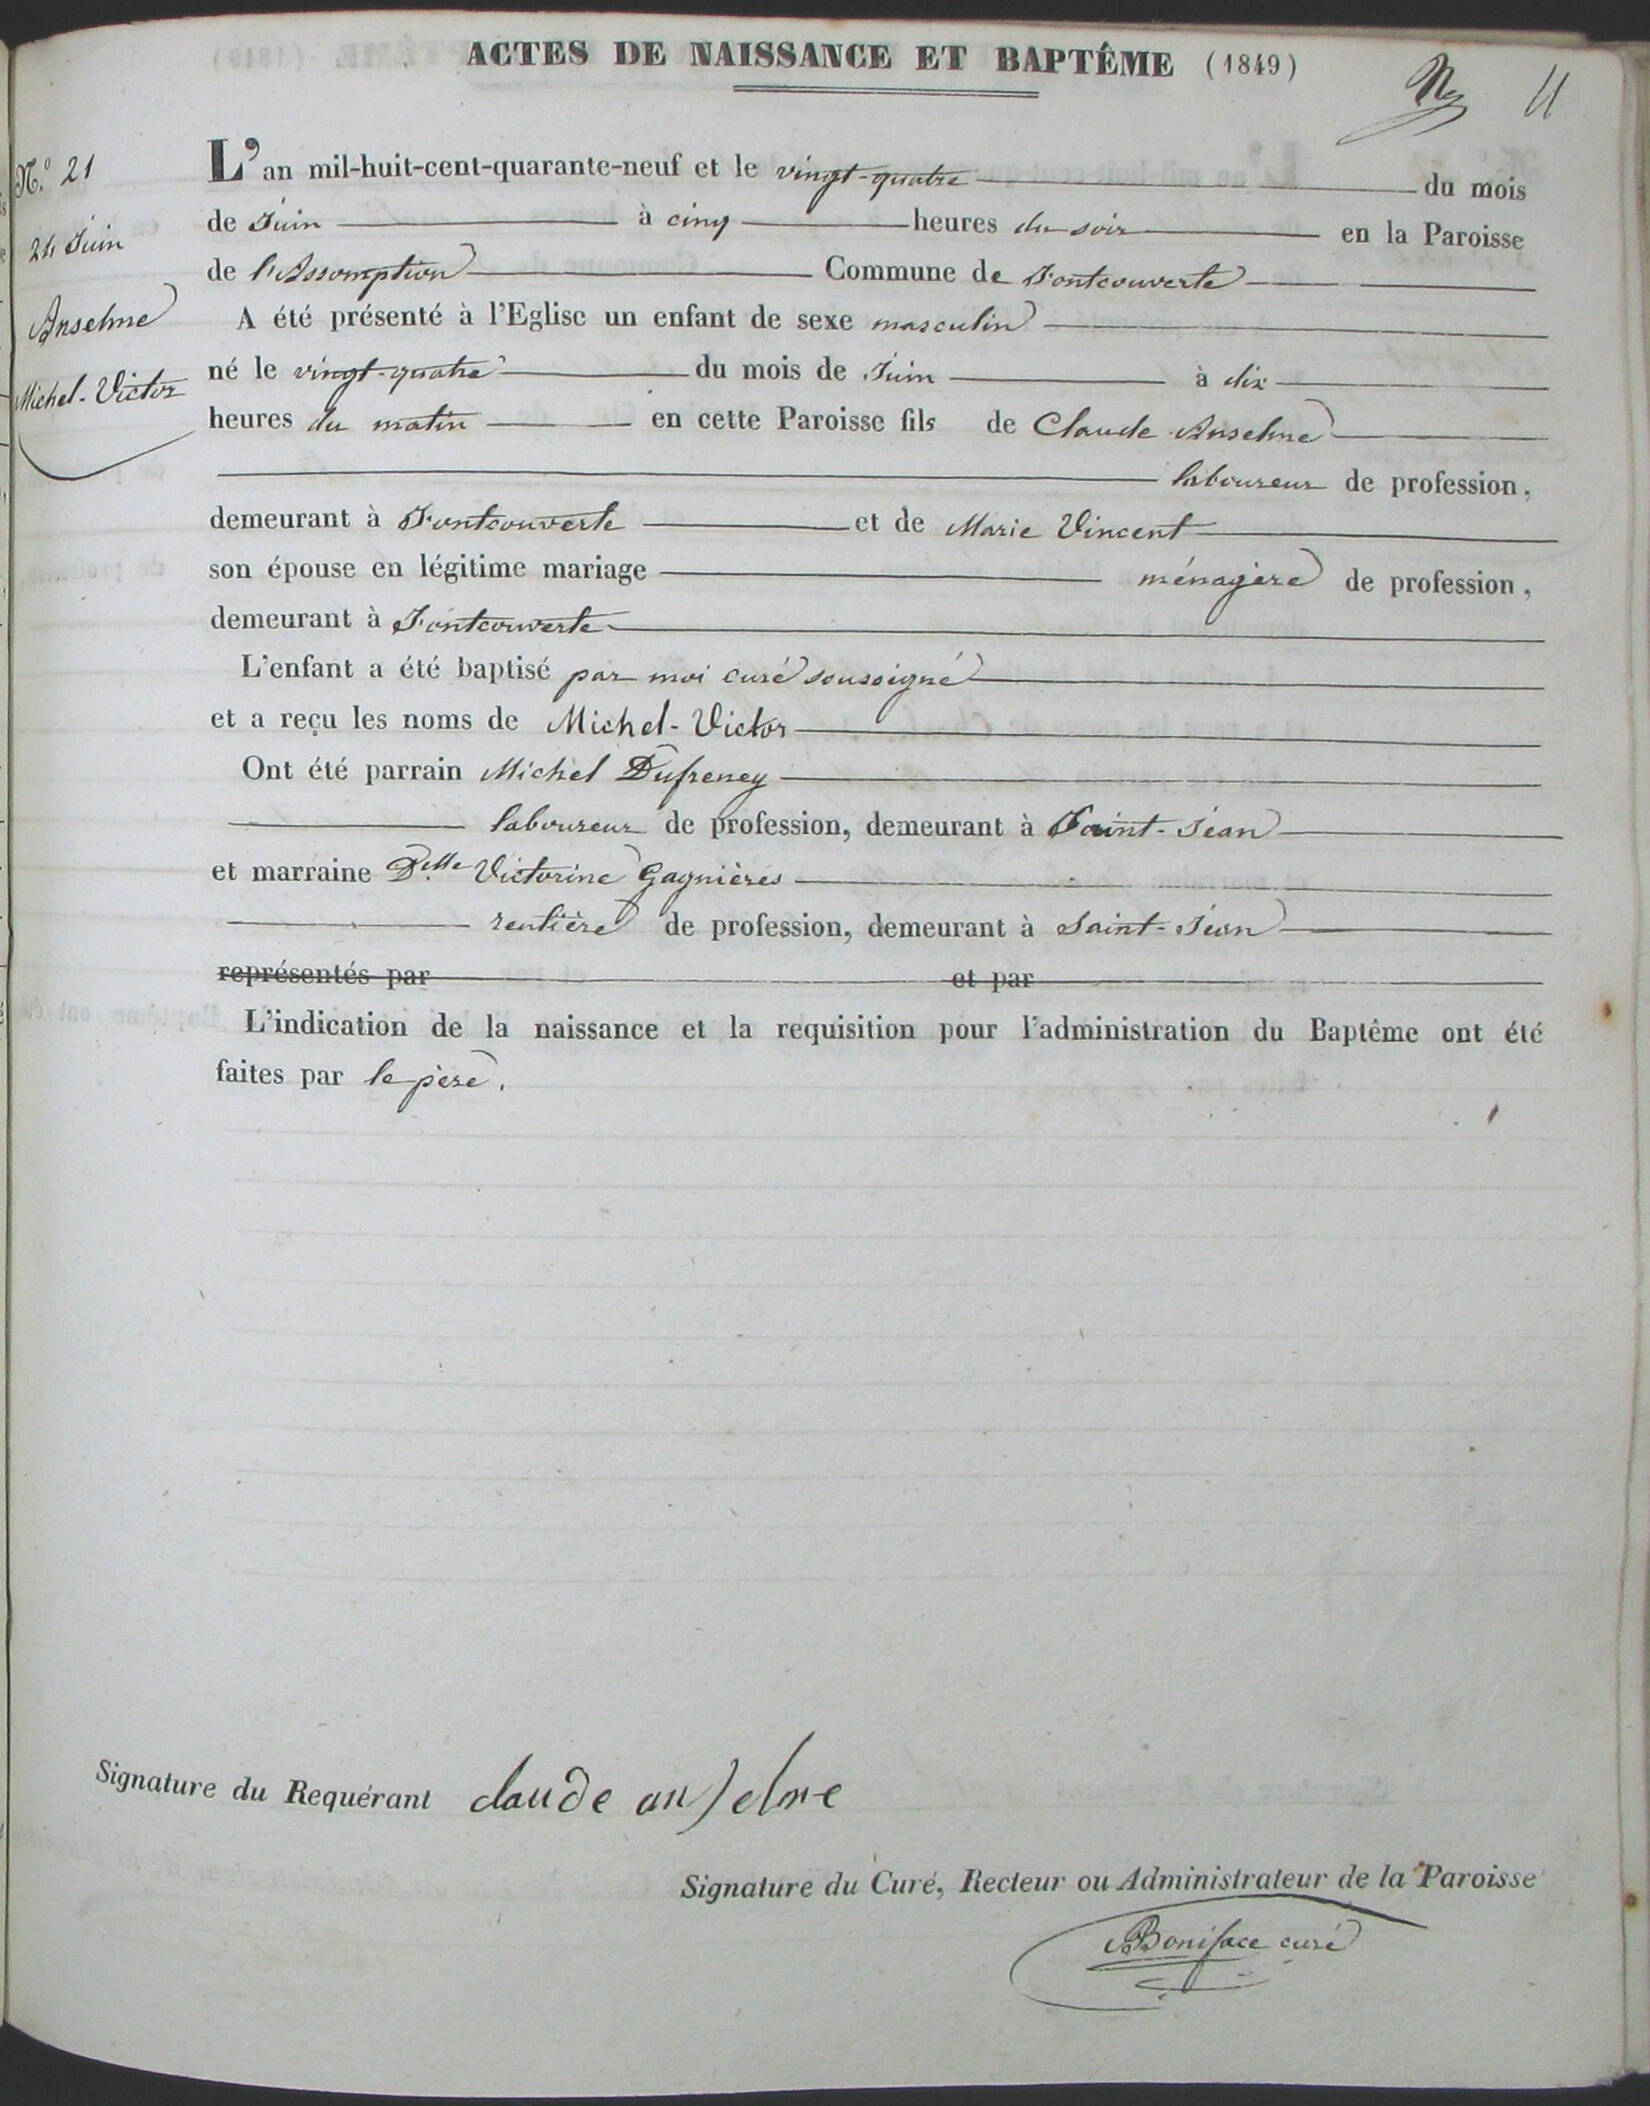 ACTES DE NAISSANCE ET BAPTÊME (1849)
11
N.º 21
24 Juin
Anselme
Michel-Victor
L'an mil-huit-cent-quarante-neuf et le vingt-quatre du mois
de Juin à cinq heures du soir en la Paroisse
de l'Assomption Commune de Fontcouverte
A été présenté à l'Eglise un enfant de sexe masculin
né le vingt-quatre du mois de Juin à dix
heures du matin en cette Paroisse fils de Claude Anselme
laboureur de profession,
demeurant à Fontcouverte et de Marie Vincent
son épouse en légitime mariage ménagère de profession,
demeurant à Fontcouverte
L'enfant a été baptisé par moi curé soussigné
et a reçu les noms de Michel-Victor
Ont été parrain Michel Dufreney
laboureur de profession, demeurant à Saint-Jean
et marraine D.elle Victorine Gagnières
rentière de profession, demeurant à Saint-Jean
représentés par et par
L'indication de la naissance et la requisition pour l'administration du Baptême ont été
faites par le père.
Signature du Requérant claude anselme
Signature du Curé, Recteur ou Administrateur de la Paroisse
Boniface curé